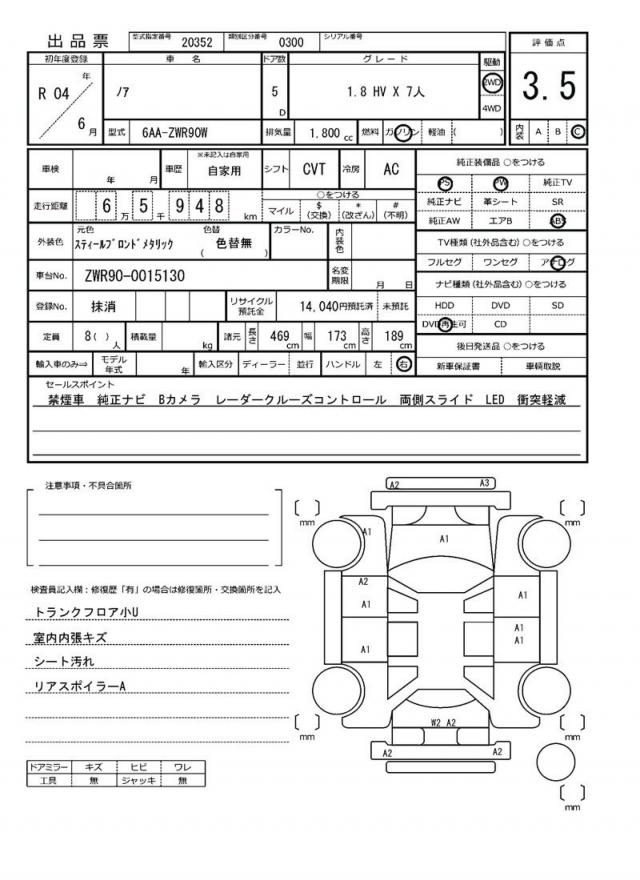 出品票 型式指定番号 20352 類別区分番号 0300 シリアル番号
初年度登録 車名 ドア数 グレード 駆動 評価点
R 04 年 6 月 ノア 5 D 1.8 HV X 7人 2WD 4WD 3.5
型式 6AA-ZWR90W 排気量 1.800 cc 燃料 ガソリン 軽油 ( ) 内装 A B C
車検 年 月 車歴 ※未記入は自家用 自家用 シフト CVT 冷房 AC
純正装備品 ○をつける
PS PW 純正TV
純正ナビ 革シート SR
純正AW エアB ABS
走行距離 6 万 5 千 9 4 8 km
○をつける
マイル $ (交換) * (改ざん) # (不明)
TV種類 (社外品含む) ○をつける
フルセグ ワンセグ アナログ
外装色 元色 スティールブロンドメタリック 色替 ( 色替無 ) カラーNo. 内装色
ナビ種類 (社外品含む) ○をつける
HDD DVD SD
DVD再生可 CD
車台No. ZWR90-0015130 名変期限 月 日
登録No. 抹消 リサイクル預託金 14,040円預託済 未預託
定員 8( ) 人 積載量 kg 諸元 長さ 469 cm 幅 173 cm 高さ 189 cm
後日発送品 ○をつける
新車保証書 車輌取説
輸入車のみ⇒ モデル年式 年 輸入区分 ディーラー 並行 ハンドル 左 右
セールスポイント
禁煙車 純正ナビ Bカメラ レーダークルーズコントロール 両側スライド LED 衝突軽減
注意事項・不具合箇所
検査員記入欄：修復歴「有」の場合は修復箇所・交換箇所を記入
トランクフロア小U
室内内張キズ
シート汚れ
リアスポイラーA
ドアミラー キズ ヒビ ワレ
工具 無 ジャッキ 無
A2 A3
[ ] mm [ ] mm
A1 A1 A1
A2
A1 A1
A1 A1
A1
[ ] mm [ ] mm
W2 A2
A2 A2
[ ] mm